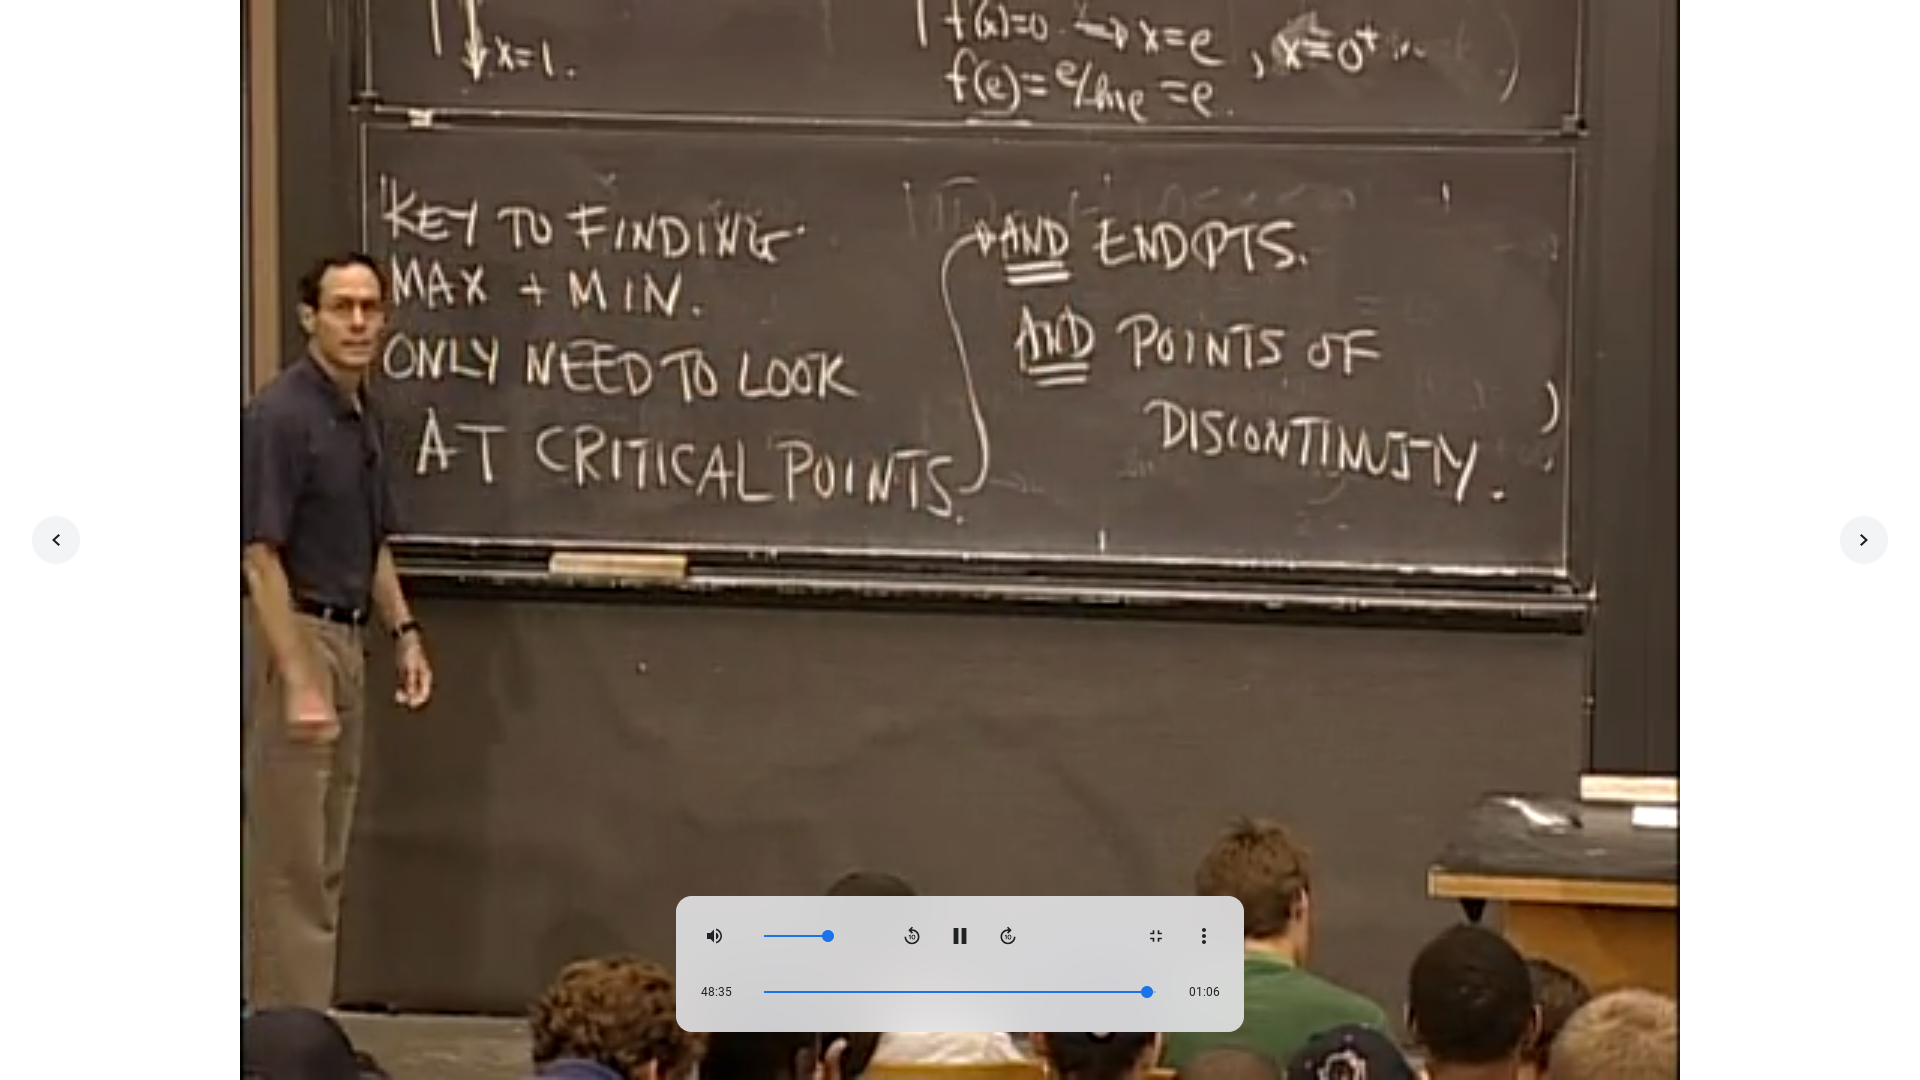 x=1.
f'(x)=0 x=e , x=0+
f(e)=e/ln e =e.
KEY TO FINDING
MAX + MIN.
ONLY NEED TO LOOK
AT CRITICAL POINTS.
AND ENDPTS.
AND POINTS OF
DISCONTINUITY.
10
10
48:35
01:06